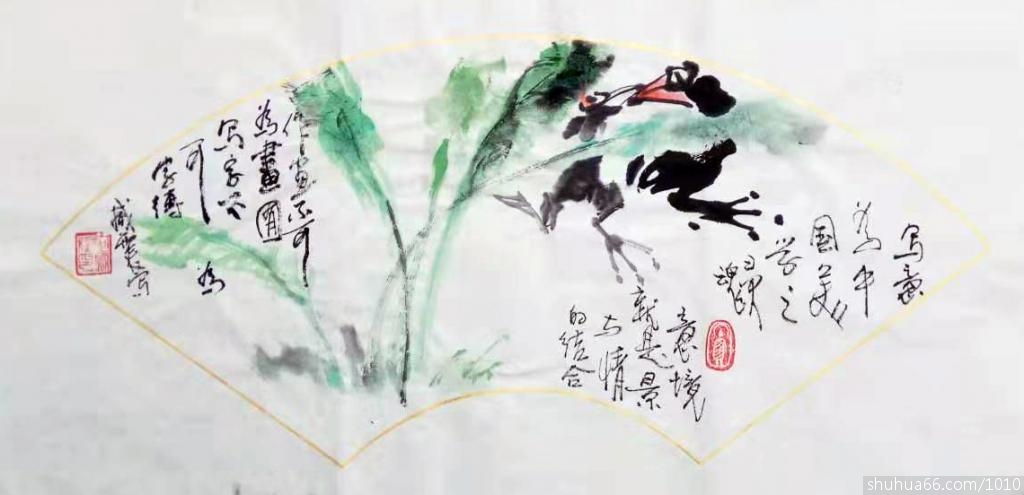 写意
为中
国美
学之
灵魂
意境
就是景
与情
的结合
作画不可
为画图
写字不
可
为
字
shuhua66.com/1010